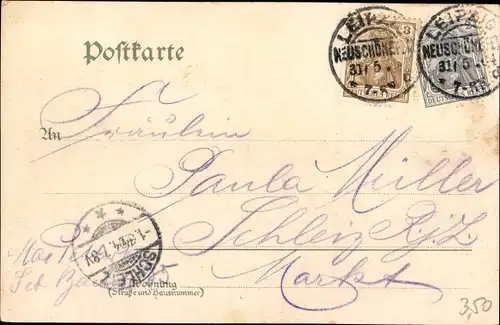 Postkarte
LEIPZIG
NEUSCHÖNEF.
31/5
* 7-8N
3
LEIPZIG
NEUSCHÖNEF.
31/5
* 7-8N
An Fräulein
Paula Müller
Schleiz R.j.L.
Markt
SCHLEIZ
7-8V
Wohnung
(Straße und Hausnummer)
3,50